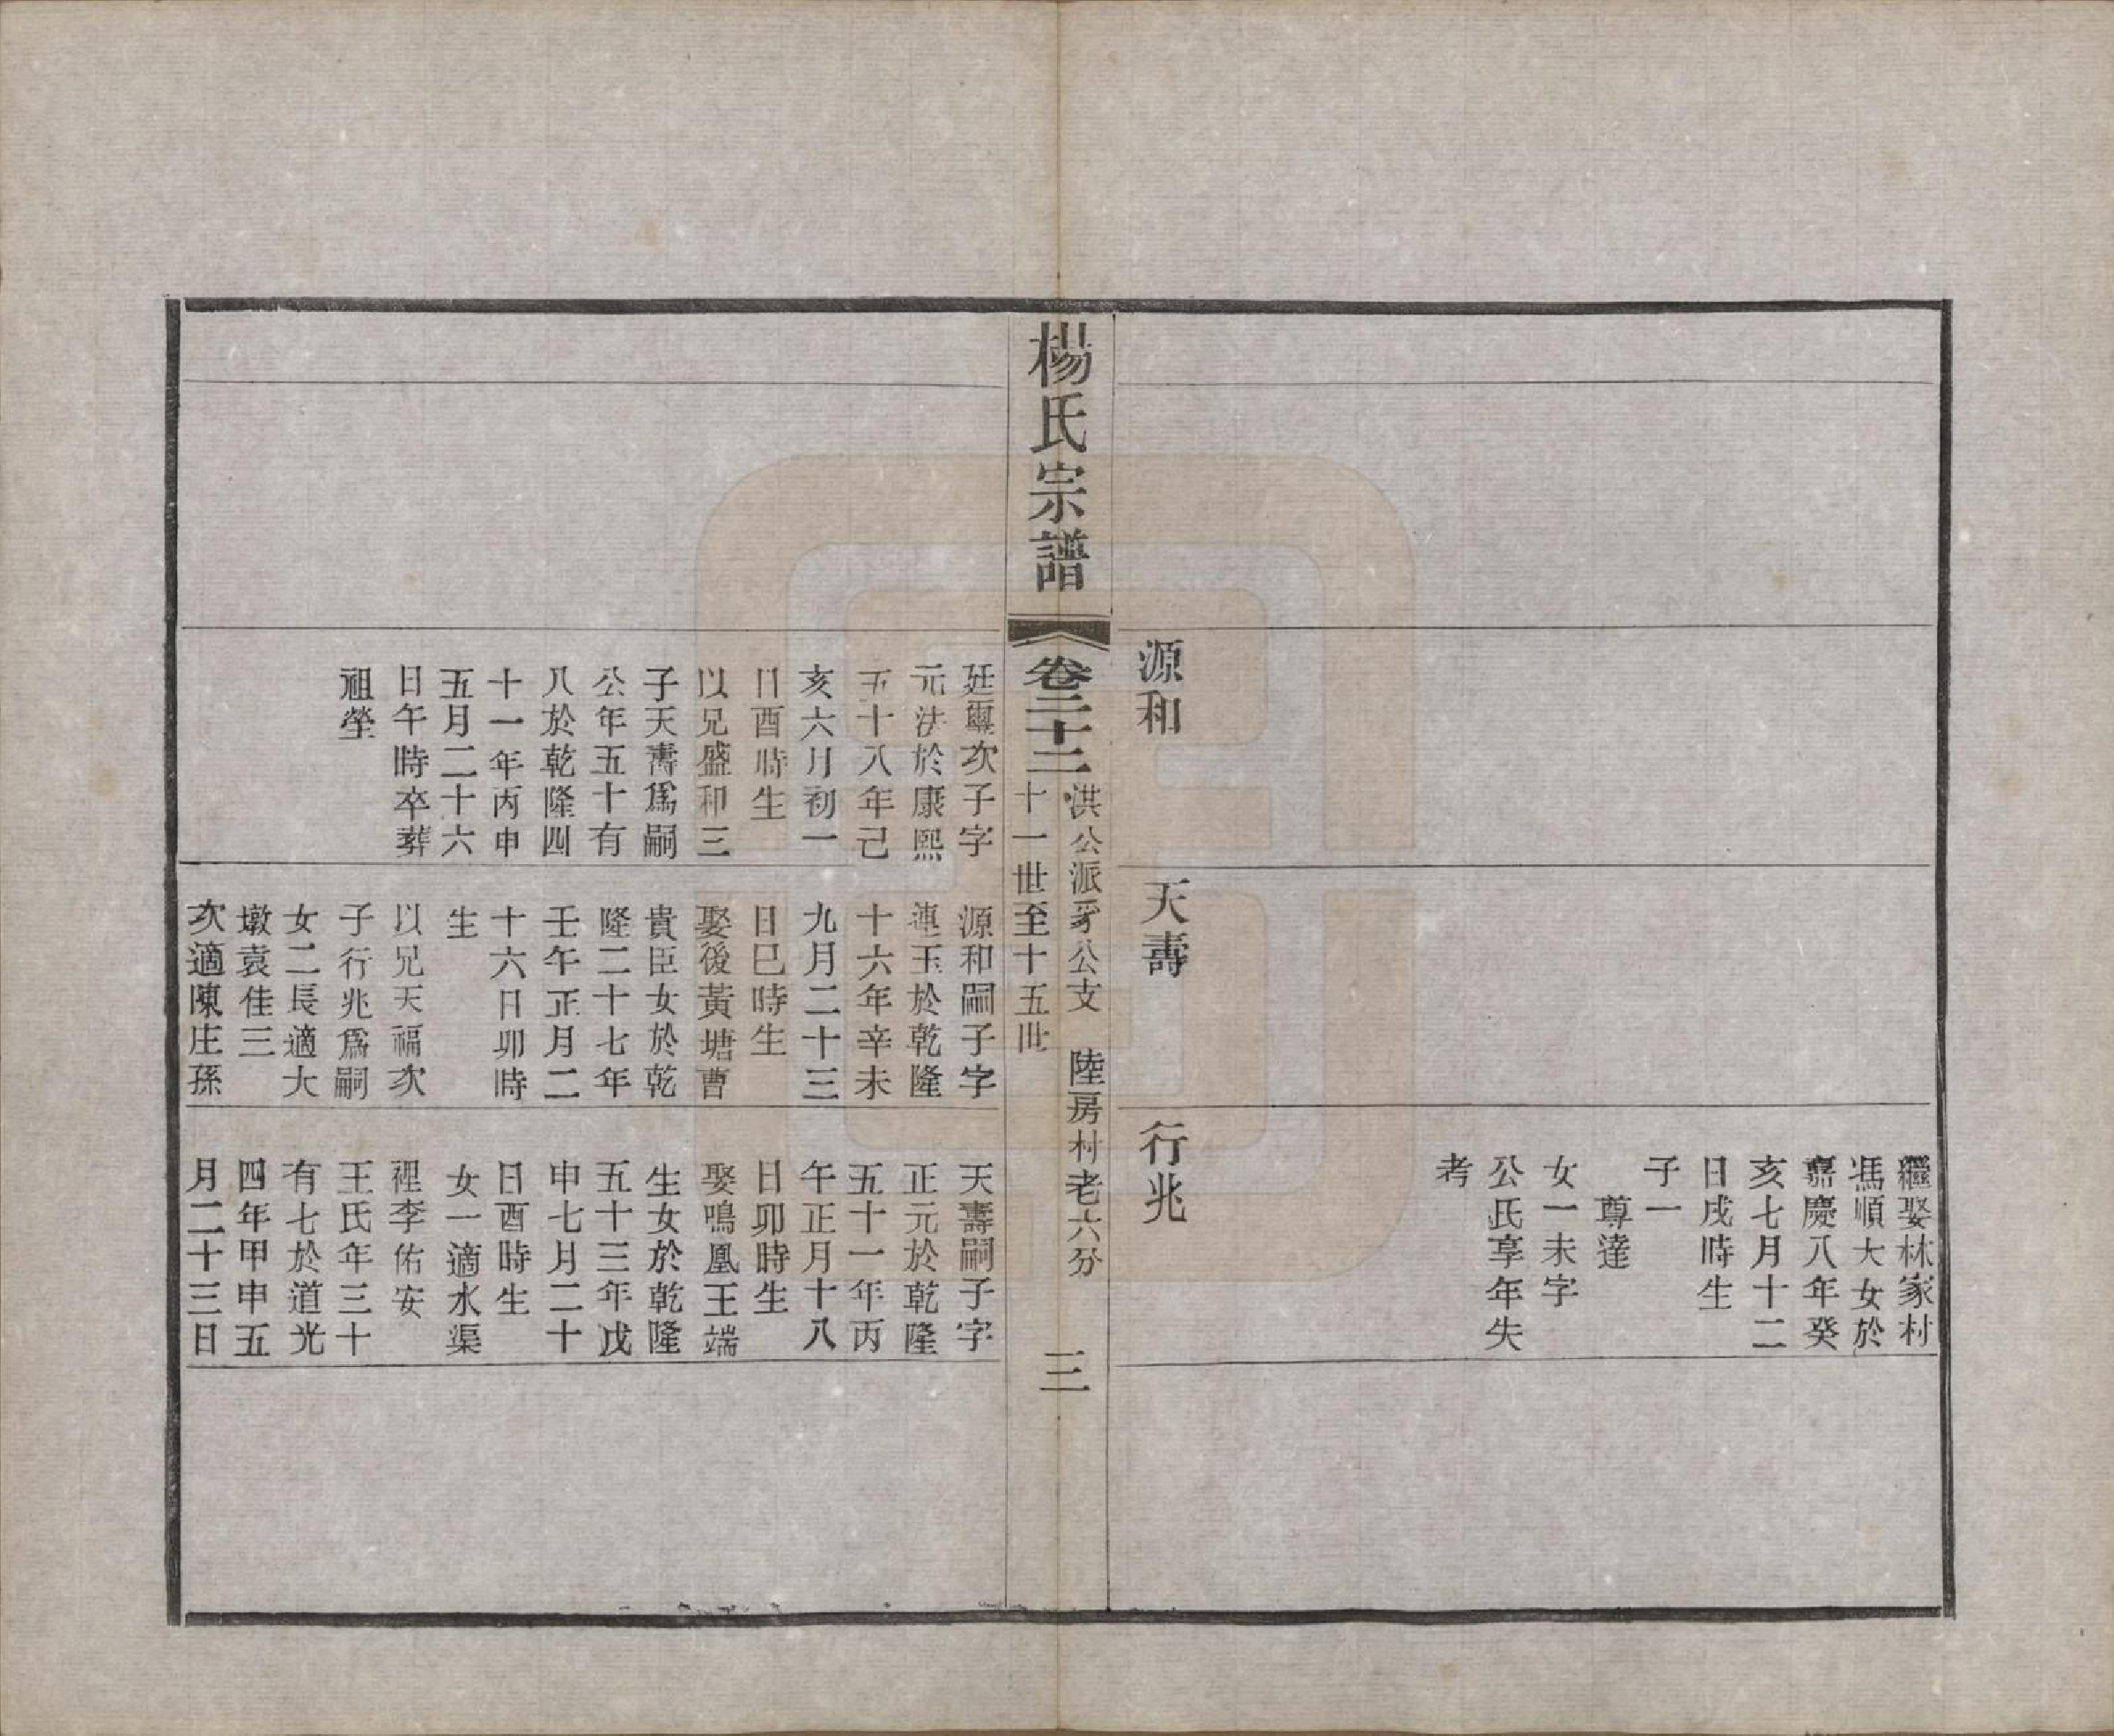 繼娶林家村
馮順大女於
嘉慶八年癸
亥七月十二
日戌時生
子一
尊達
女一未字
公氏享年失
考
源和
天壽
行兆
楊氏宗譜
卷二十二
洪公派爭公支 陸房村老六分
十一世至十五世
三
廷璽次子字
元洪於康熙
五十八年己
亥六月初一
日酉時生
以兄盛和三
子天壽爲嗣
公年五十有
八於乾隆四
十一年丙申
五月二十六
日午時卒葬
祖塋
源和嗣子字
連玉於乾隆
十六年辛未
九月二十三
日巳時生
娶後黃塘曹
貴臣女於乾
隆二十七年
壬午正月二
十六日卯時
生
以兄天福次
子行兆爲嗣
女二長適大
墩袁佳三
次適陳庄孫
天壽嗣子字
正元於乾隆
五十一年丙
午正月十八
日卯時生
娶鳴凰王端
生女於乾隆
五十三年戊
申七月二十
日酉時生
女一適水渠
裡李佑安
王氏年三十
有七於道光
四年甲申五
月二十三日